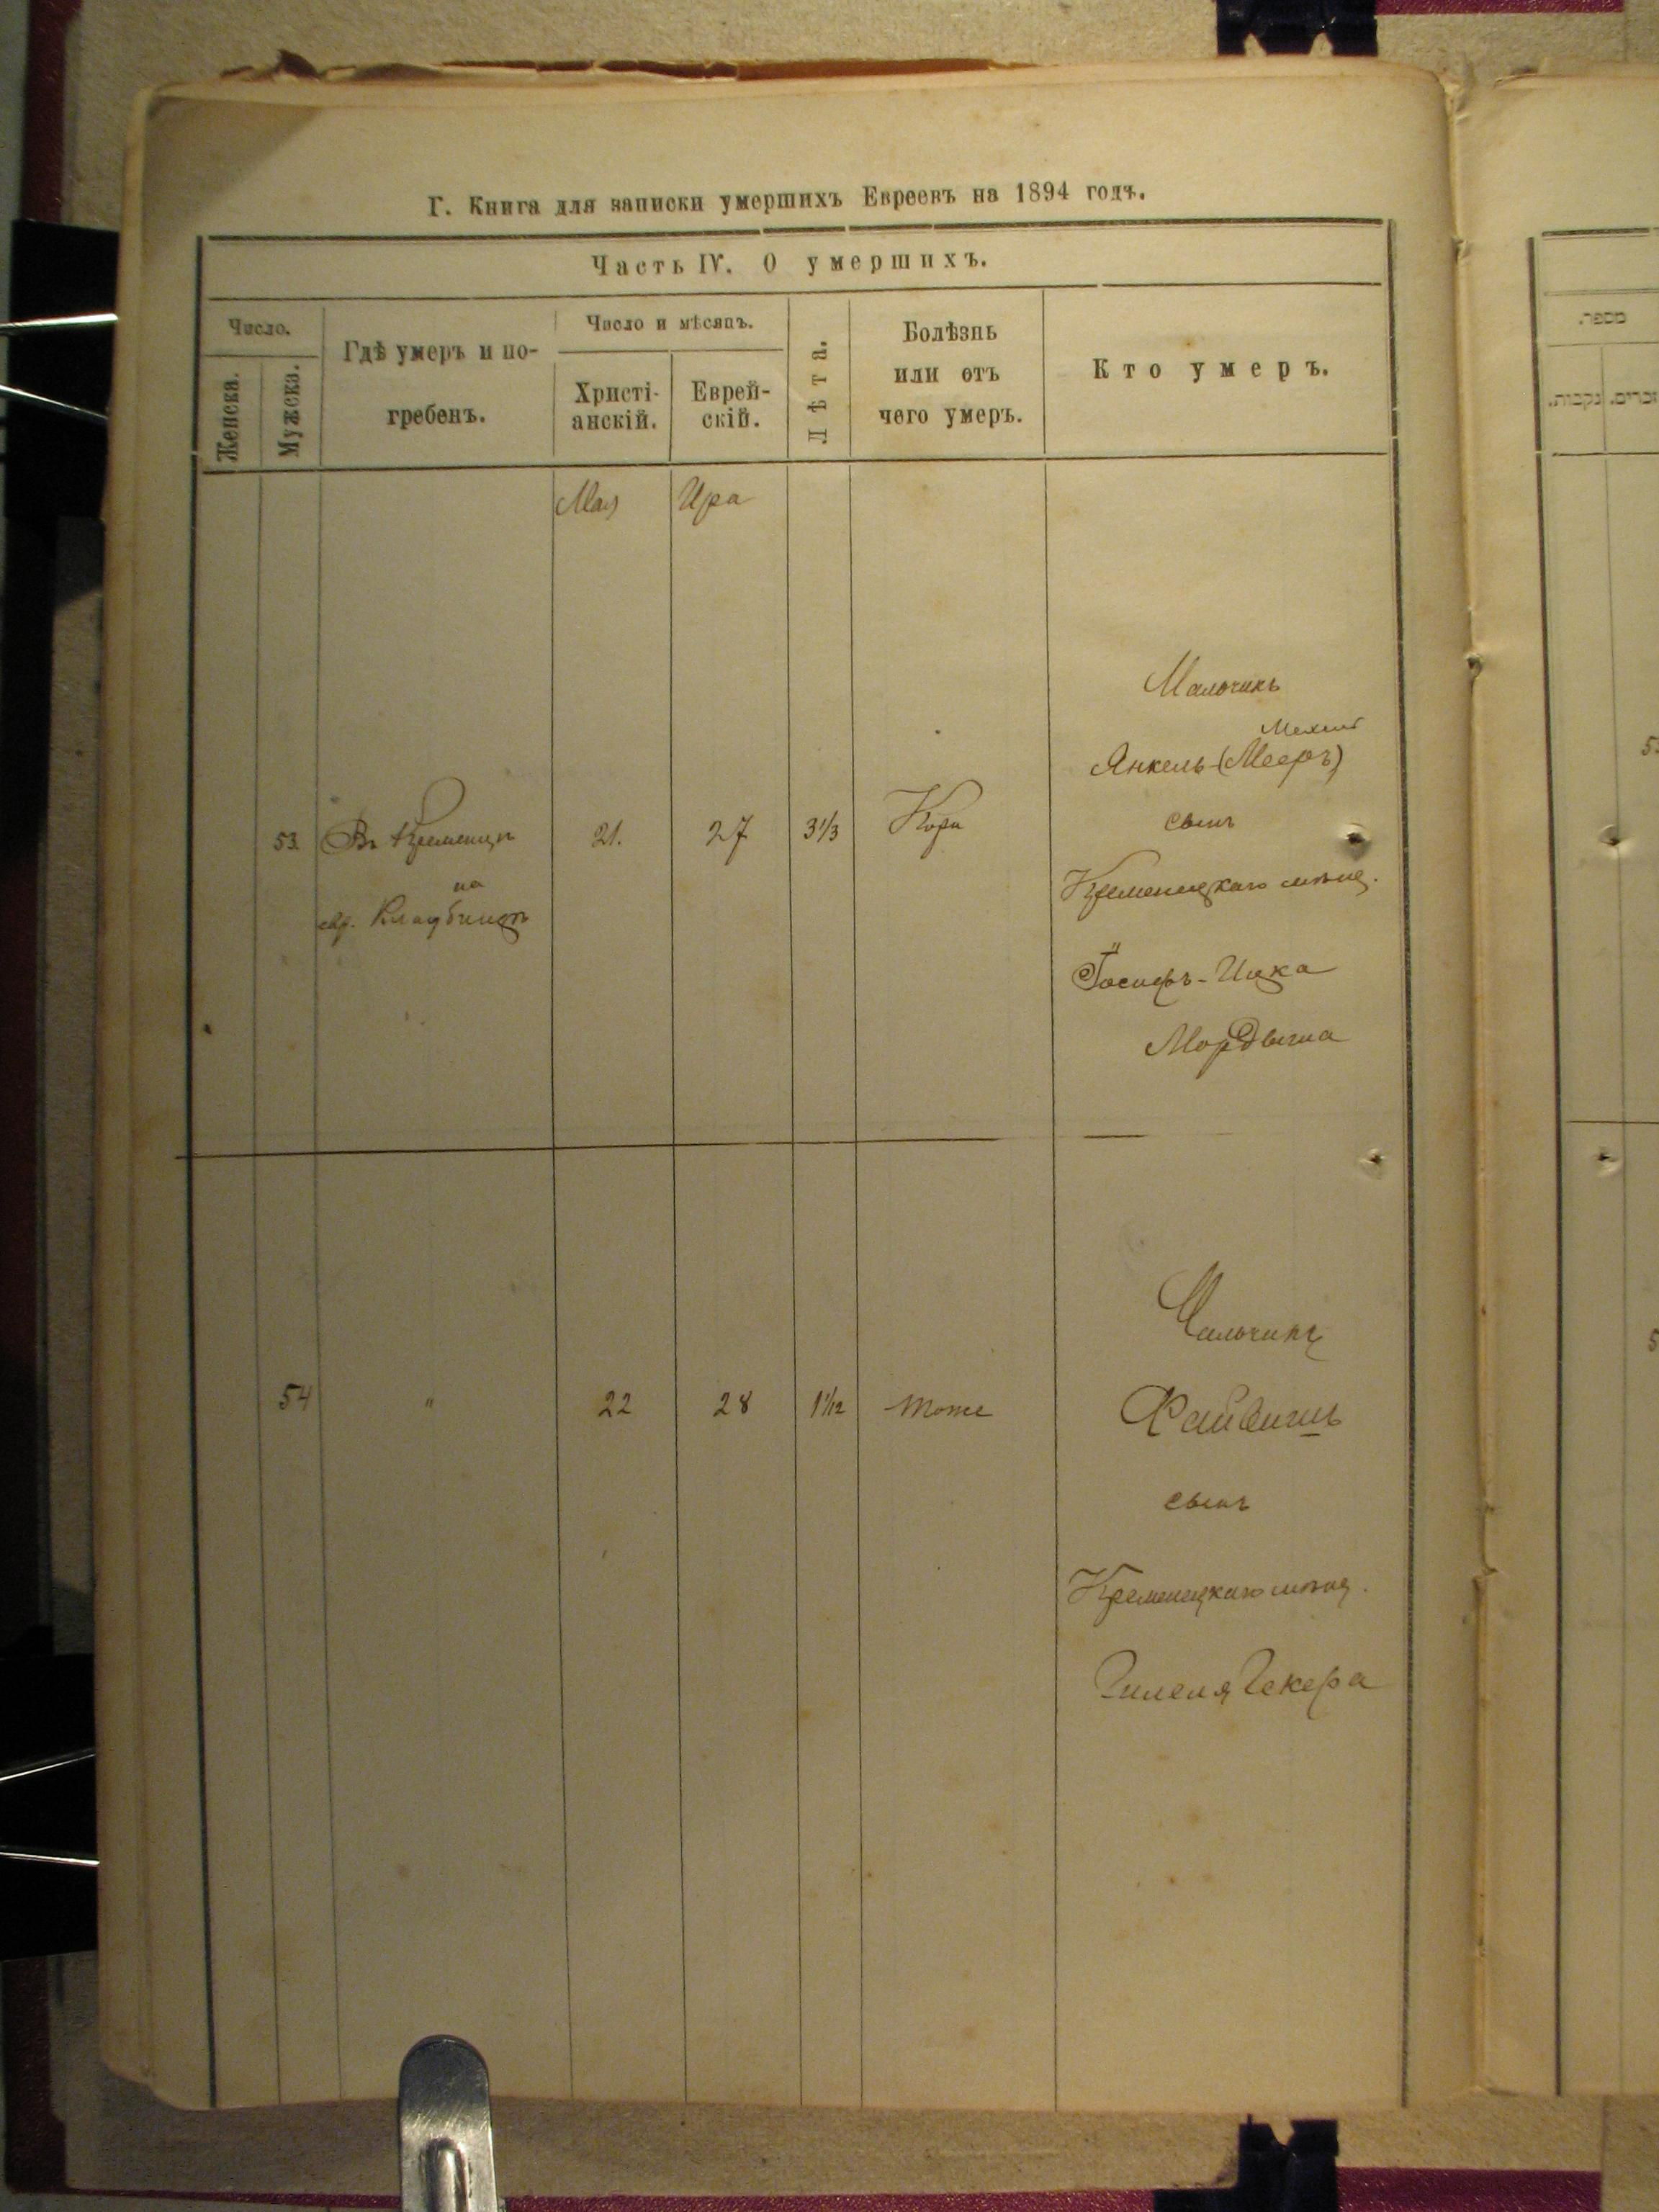 Г. Книга для записки умершихъ Евреевъ на 1894 годъ.
Часть IV. О умершихъ.
Число.
Женска.
Мужска.
Гдѣ умеръ и по-
гребенъ.
Число и мѣсяцъ.
Христі-
анскій.
Еврей-
скій.
Лѣта.
Болѣзнь
или отъ
чего умеръ.
Кто умеръ.
Мая
Ира
53.
Въ Кременцѣ
на
евр. Кладбищѣ
21.
27
3 1/3
Кори
Мальчикъ
Янкель (Мееръ)
сынъ
Кременецкаго мѣщ.
Іосифъ-Ицка
54
"
22
28
1 1/12
тоже
Мальчикъ
Файвишъ
сынъ
Кременецкаго мѣщ.
מספר.
זכרים.
נקבות.
5
5